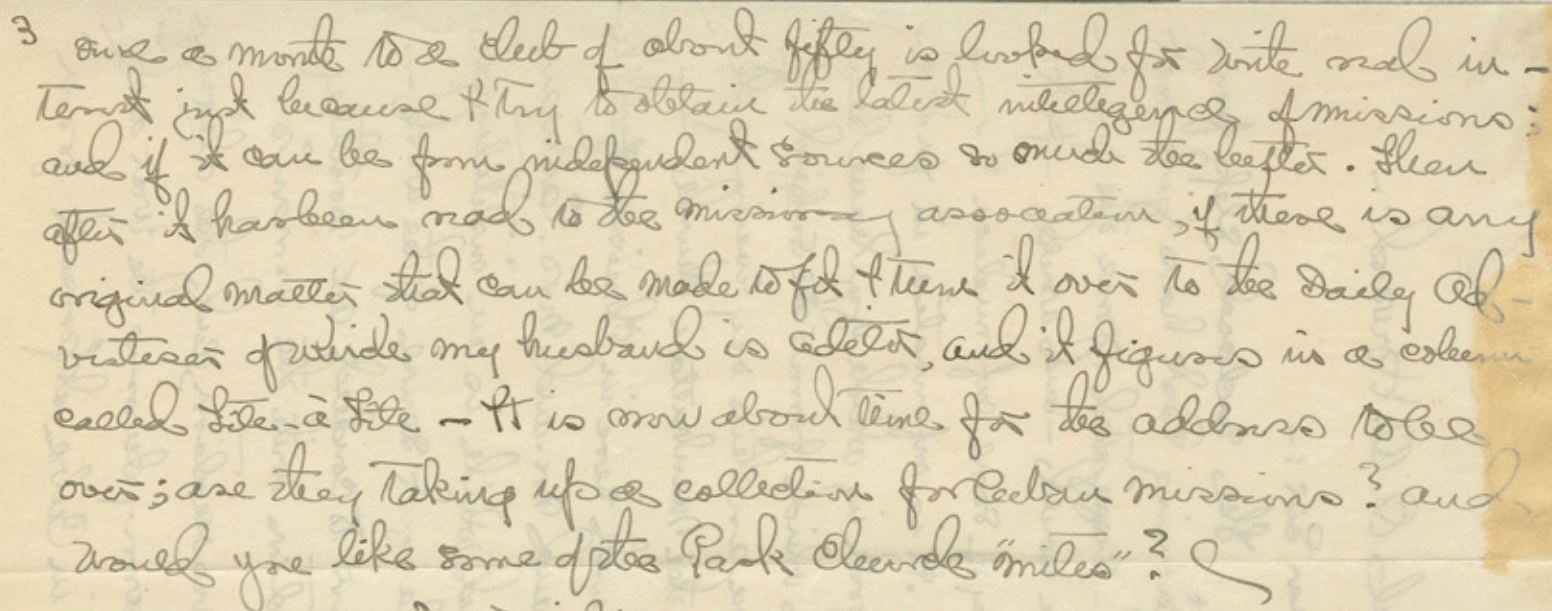 3 once a month to a club of about fifty is looked for with real in-
terest just because I try to obtain the latest intelligence of missions;
and if it can be from independent sources so much the better. Then
after it has been read to the missionary association, if there is any
original matter that can be made to fit I turn it over to the Daily Ad-
vertiser of which my husband is editor, and it figures in a column
called Tête-à Tête - It is now about time for the address to be
over; are they taking up a collection for Cuban missions? and
would you like some of the Park Church "mites"?